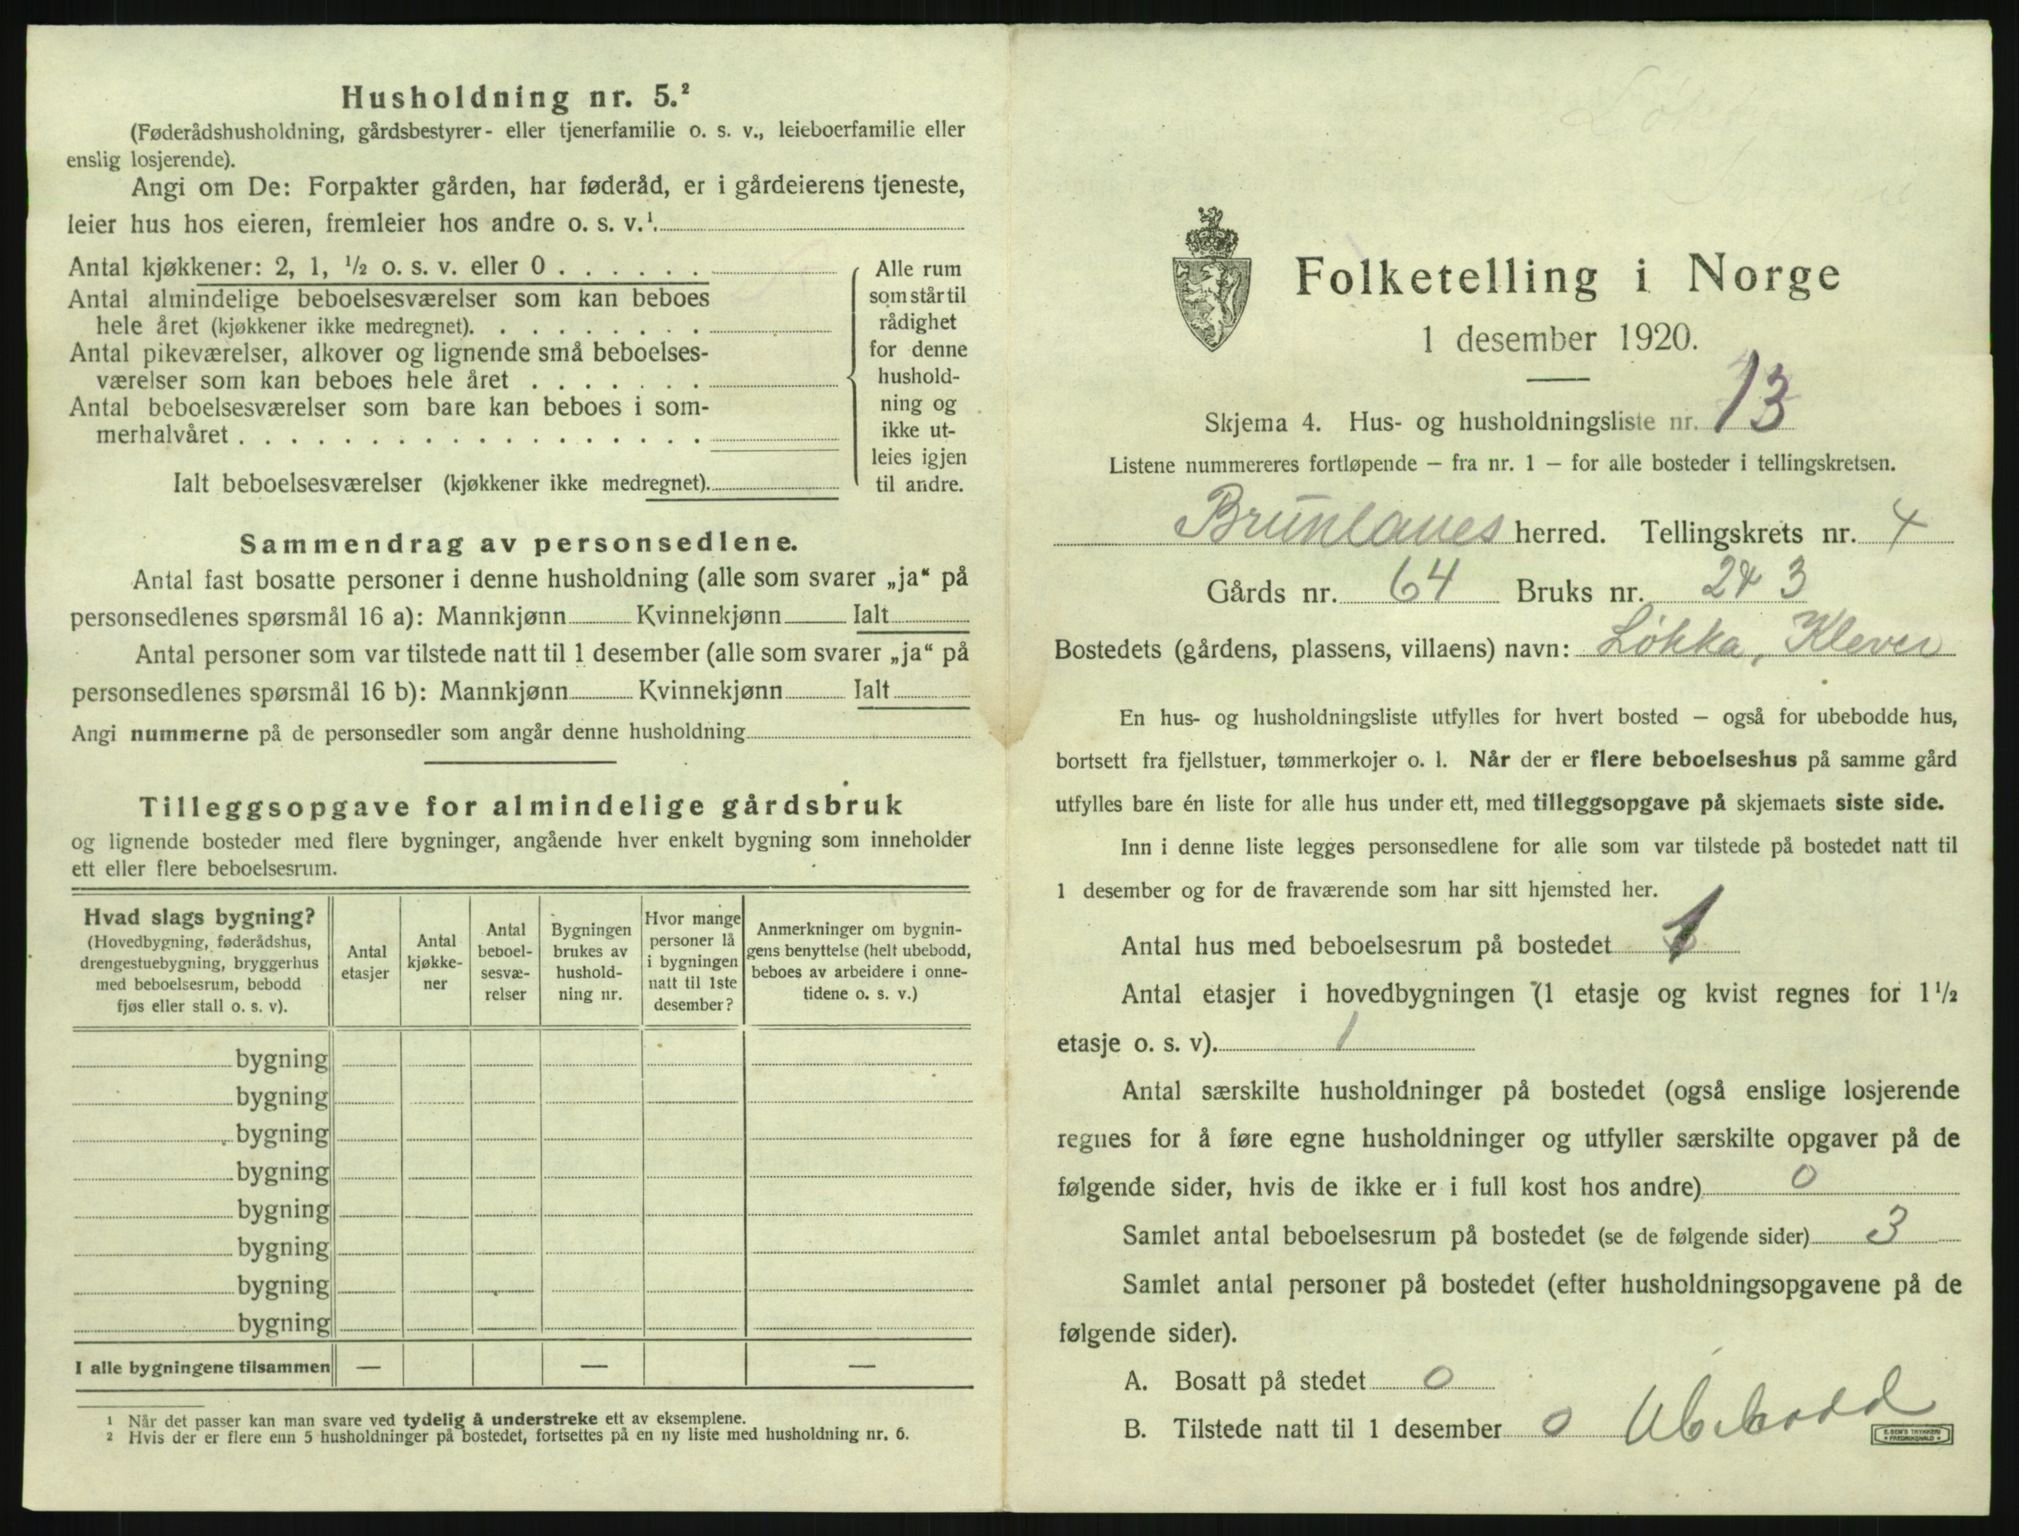 Husholdning nr. 5.²
(Føderådshusholdning, gårdsbestyrer- eller tjenerfamilie o. s. v., leieboerfamilie eller
enslig losjerende).
Angi om De: Forpakter gården, har føderåd, er i gårdeierens tjeneste,
leier hus hos eieren, fremleier hos andre o. s. v.¹.
Antal kjøkkener: 2, 1, ½ o. s. v. eller 0 . . . . . .
Antal almindelige beboelsesværelser som kan beboes
hele året (kjøkkener ikke medregnet). . . . . . . . .
Antal pikeværelser, alkover og lignende små beboelses-
værelser som kan beboes hele året . . . . . . .
Antal beboelsesværelser som bare kan beboes i som-
merhalvåret . . . . . . . . . . . . . . . . . .
Ialt beboelsesværelser (kjøkkener ikke medregnet).
Alle rum
som står til
rådighet
for denne
hushold-
ning og
ikke ut-
leies igjen
til andre.
Sammendrag av personsedlene.
Antal fast bosatte personer i denne husholdning (alle som svarer „ja“ på
personsedlenes spørsmål 16 a): Mannkjønn Kvinnekjønn Ialt
Antal personer som var tilstede natt til 1 desember (alle som svarer „ja“ på
personsedlenes spørsmål 16 b): Mannkjønn Kvinnekjønn Ialt
Angi nummerne på de personsedler som angår denne husholdning
Tilleggsopgave for almindelige gårdsbruk
og lignende bosteder med flere bygninger, angående hver enkelt bygning som inneholder
ett eller flere beboelsesrum.
Hvad slags bygning?
(Hovedbygning, føderådshus,
drengestuebygning, bryggerhus
med beboelsesrum, bebodd
fjøs eller stall o. s. v).
Antal
etasjer
Antal
kjøkke-
ner
Antal
beboel-
sesvæ-
relser
Bygningen
brukes av
hushold-
ning nr.
Hvor mange
personer lå
i bygningen
natt til 1ste
desember?
Anmerkninger om bygnin-
gens benyttelse (helt ubebodd,
beboes av arbeidere i onne-
tidene o. s. v.)
bygning
bygning
bygning
bygning
bygning
bygning
bygning
bygning
I alle bygningene tilsammen — — —
¹ Når det passer kan man svare ved tydelig å understreke ett av eksemplene.
² Hvis der er flere enn 5 husholdninger på bostedet, fortsettes på en ny liste med husholdning nr. 6.
Folketelling i Norge
1 desember 1920.
Skjema 4. Hus- og husholdningsliste nr. 13
Listene nummereres fortløpende – fra nr. 1 – for alle bosteder i tellingskretsen.
Brunlanes herred. Tellingskrets nr. 4
Gårds nr. 64 Bruks nr. 2 & 3
Bostedets (gårdens, plassens, villaens) navn: Løkka, Klever
En hus- og husholdningsliste utfylles for hvert bosted – også for ubebodde hus,
bortsett fra fjellstuer, tømmerkojer o. l. Når der er flere beboelseshus på samme gård
utfylles bare én liste for alle hus under ett, med tilleggsopgave på skjemaets siste side.
Inn i denne liste legges personsedlene for alle som var tilstede på bostedet natt til
1 desember og for de fraværende som har sitt hjemsted her.
Antal hus med beboelsesrum på bostedet 1
Antal etasjer i hovedbygningen (1 etasje og kvist regnes for 1½
etasje o. s. v). 1
Antal særskilte husholdninger på bostedet (også enslige losjerende
regnes for å føre egne husholdninger og utfyller særskilte opgaver på de
følgende sider, hvis de ikke er i full kost hos andre) 0
Samlet antal beboelsesrum på bostedet (se de følgende sider) 3
Samlet antal personer på bostedet (efter husholdningsopgavene på de
følgende sider).
A. Bosatt på stedet 0
B. Tilstede natt til 1 desember 0 Ubebodd
E. SEM'S TRYKKERI
FREDRIKSHALD